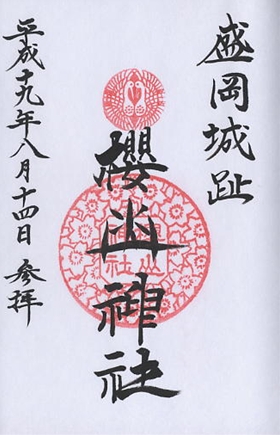 盛岡城趾
櫻山神社
平成十九年八月十四日 参拝